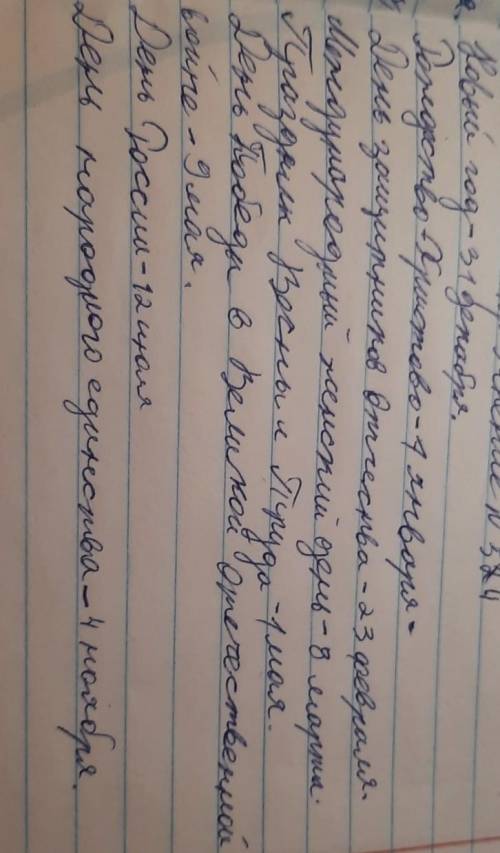 № 324
Новый год - 31 декабря.
Рождество Христово - 7 января.
День защитников Отчества - 23 февраля.
Международный женский день - 8 марта.
Праздник Весны и Труда - 1 мая.
День Победы в Великой Отечественной
войне - 9 мая.
День России - 12 июля
День народного единства - 4 ноября.